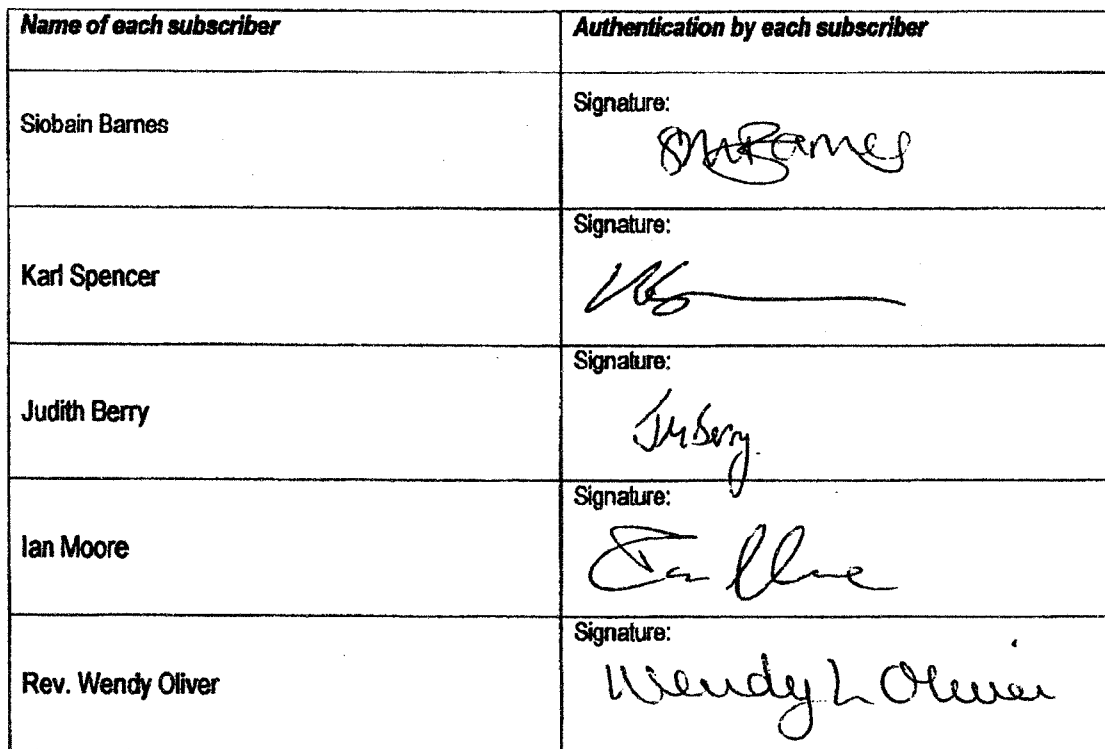 Name of each subscriber
Authentication by each subscriber
Siobain Barnes
Signature:
SMBarnes
Karl Spencer
Signature:
Judith Berry
Signature:
JMBerry
Ian Moore
Signature:
Rev. Wendy Oliver
Signature:
Wendy L Oliver